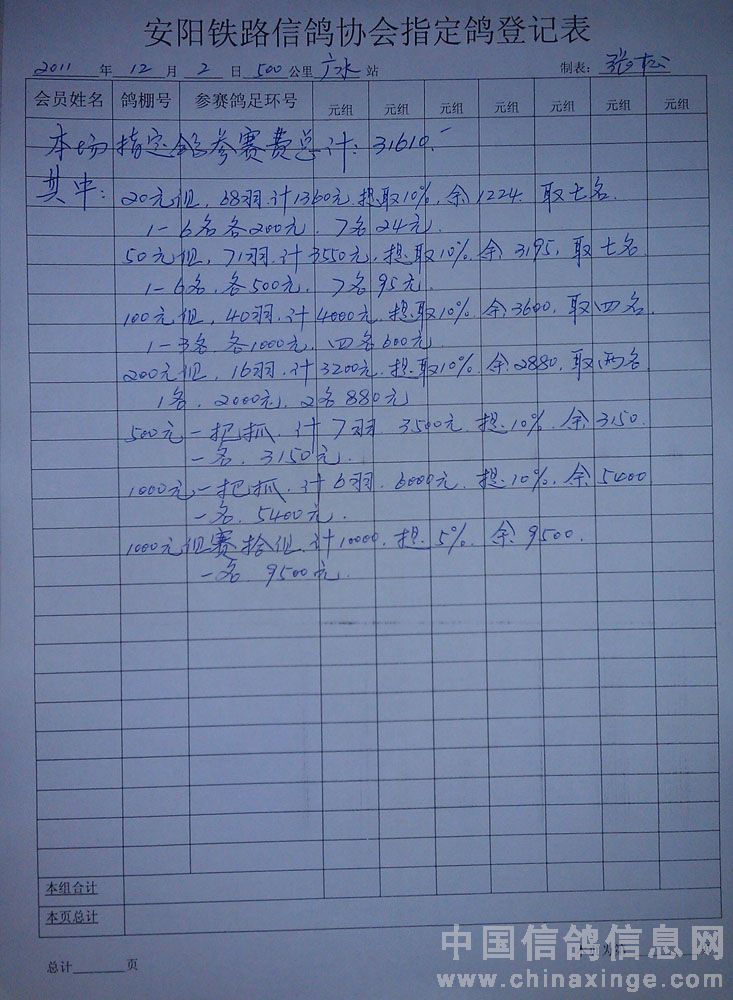 安阳铁路信鸽协会指定鸽登记表
2011年12月2日500公里广水站 制表：张松
会员姓名 鸽棚号 参赛鸽足环号 元组 元组 元组 元组 元组 元组 元组
本场指定鸽参赛费总计：31610.-
其中：20元组，68羽.计1360元，提取10%，余1224. 取七名.
1-6名各200元. 7名24元.
50元组，71羽.计3550元，提取10%，余3195，取七名
1-6名，各500元. 7名95元.
100元组，40羽.计4000元，提取10%，余3600，取四名.
1-3名，各1000元，四名600元.
200元组，16羽.计3200元，提取10%，余2880，取两名
1名，2000元，2名880元
500元一把抓，计7羽. 3500元，提10%，余3150.
一名，3150元.
1000元一把抓，计6羽. 6000元，提10%，余5400
一名，5400元.
1000元组赛拾组，计10000，提5%，余9500.
一名 9500元.
本组合计
本页总计
总计______页
中国信鸽信息网
www.chinaxinge.com